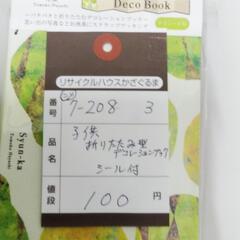 Deco Book
リサイクルハウスかざぐるま
番号 7-208 3
品名 子供
折りたたみ型
デコレーションブック
シール付
値段 100円
Syun-ka